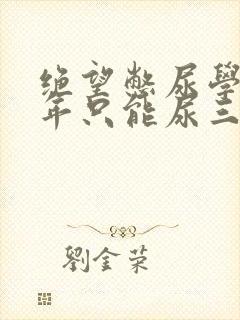 绝望憋尿學
年只能尿三
劉金荣